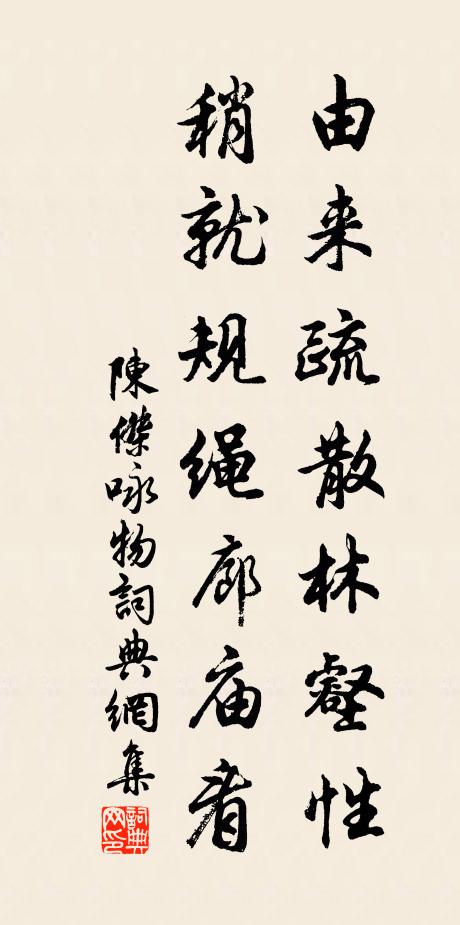 由来疏散林壑性
稍就规绳廊庙看
陳傑咏物詞典網集
詞典網印